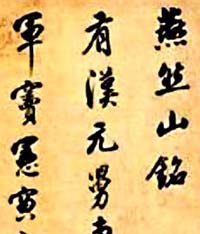 燕然山銘
有漢元舅
軍竇憲寅